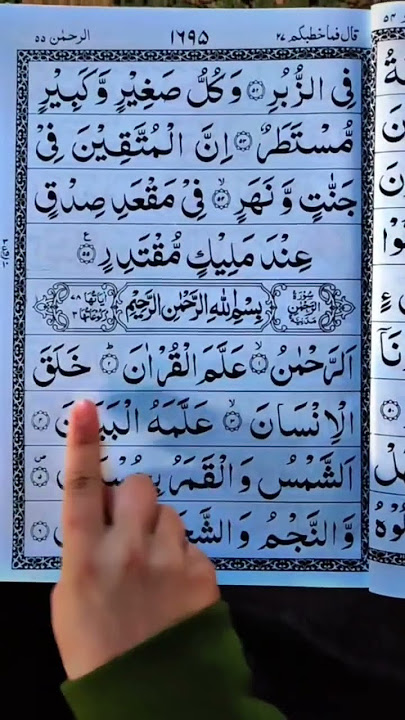 قال فما خطبكم ٢٧ ١٦٩٥ الرحمٰن ٥٥
فِى الزُّبُرِ ۝٥٢ وَكُلُّ صَغِيْرٍ وَّكَبِيْرٍ
مُّسْتَطَرٌ ۝٥٣ اِنَّ الْمُتَّقِيْنَ فِىْ
جَنّٰتٍ وَّنَهَرٍ ۝٥٤ فِىْ مَقْعَدِ صِدْقٍ
عِنْدَ مَلِيْكٍ مُّقْتَدِرٍ ۝٥٥
سُوْرَةُ الرَّحْمٰنِ مَدَنِيَّةٌ بِسْمِ اللّٰهِ الرَّحْمٰنِ الرَّحِيْمِ اٰيَاتُهَا ٧٨ رُكُوْعَاتُهَا ٣
اَلرَّحْمٰنُ ۝١ عَلَّمَ الْقُرْاٰنَ ۝٢ خَلَقَ
الْاِنْسَانَ ۝٣ عَلَّمَهُ ۝٤
اَلشَّمْسُ وَالْقَمَرُ ۝٥
وَّالنَّجْمُ ۝٦